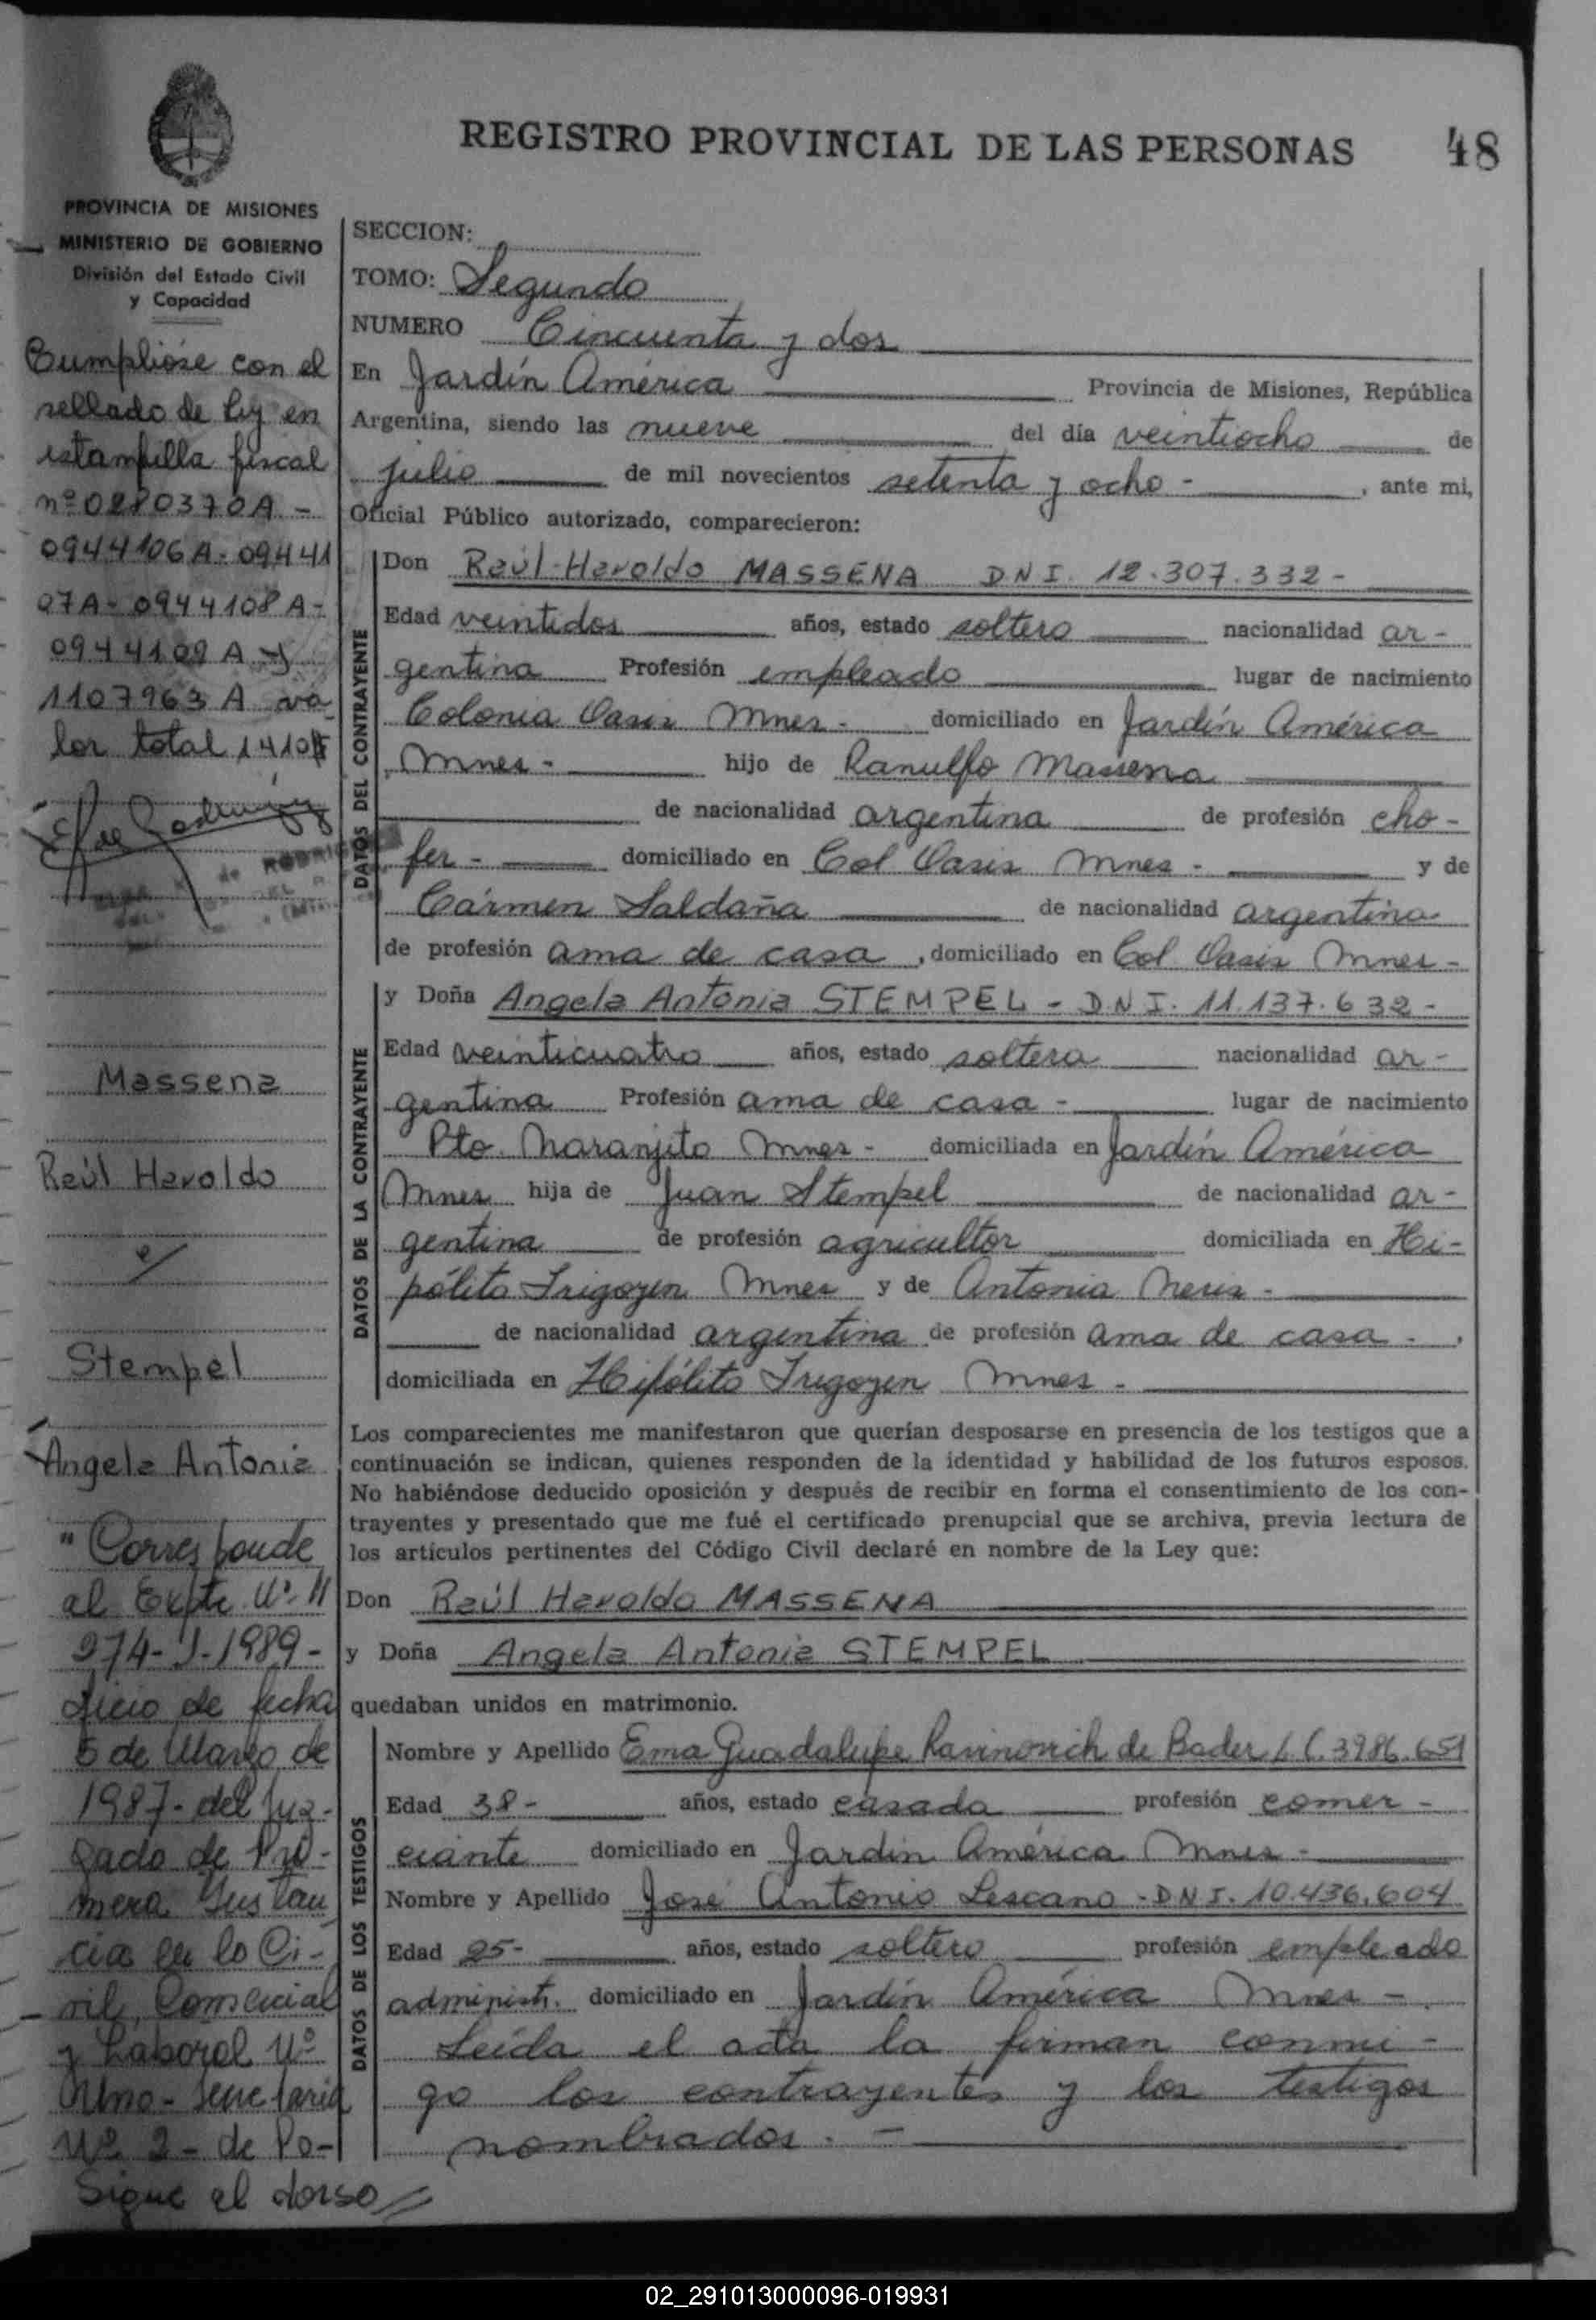 REGISTRO PROVINCIAL DE LAS PERSONAS 48
PROVINCIA DE MISIONES
MINISTERIO DE GOBIERNO
División del Estado Civil
y Capacidad
Cumplióse con el
sellado de ley en
estampilla fiscal
nº 0280370A -
0944106A - 09441
07A - 0944108A -
0944109A y
1107963A va
lor total 1410
de RODRIG
Massena
Raúl Haroldo
c/
Stempel
Angela Antonia
"Corresponde
al Expte. Nº 11
974-J-1989-
oficio de fecha
5 de Marzo de
1987- del Juz-
gado de Pri-
mera Instan
cia en lo Ci-
vil, Comercial
y Laboral Nº
Uno - Secretaria
Nº 2 - de Po-
Sigue al dorso //
SECCION:
TOMO: Segundo
NUMERO Cincuenta y dos
En Jardín América Provincia de Misiones, República
Argentina, siendo las nueve del día veintiocho de
julio de mil novecientos setenta y ocho - , ante mi,
Oficial Público autorizado, comparecieron:
DATOS DEL CONTRAYENTE
Don Raúl Haroldo MASSENA DNI. 12.307.332 -
Edad veintidos años, estado soltero nacionalidad ar-
gentina Profesión empleado lugar de nacimiento
Colonia Oasis Mnes - domiciliado en Jardín América
Mnes - hijo de Ranulfo Massena
de nacionalidad argentina de profesión cho-
fer - domiciliado en Col Oasis Mnes - y de
Cármen Saldaña de nacionalidad argentina
de profesión ama de casa , domiciliado en Col Oasis Mnes -
DATOS DE LA CONTRAYENTE
y Doña Angela Antonia STEMPEL - D.N.I. 11.137.632 -
Edad veinticuatro años, estado soltera nacionalidad ar-
gentina Profesión ama de casa - lugar de nacimiento
Pto. Naranjito Mnes - domiciliada en Jardín América
Mnes hija de Juan Stempel de nacionalidad ar-
gentina de profesión agricultor domiciliada en Hi-
pólito Irigoyen Mnes y de Antonia Neris -
de nacionalidad argentina de profesión ama de casa - ,
domiciliada en Hipólito Irigoyen Mnes -
Los comparecientes me manifestaron que querían desposarse en presencia de los testigos que a
continuación se indican, quienes responden de la identidad y habilidad de los futuros esposos.
No habiéndose deducido oposición y después de recibir en forma el consentimiento de los con-
trayentes y presentado que me fué el certificado prenupcial que se archiva, previa lectura de
los artículos pertinentes del Código Civil declaré en nombre de la Ley que:
Don Raúl Haroldo MASSENA
y Doña Angela Antonia STEMPEL
quedaban unidos en matrimonio.
DATOS DE LOS TESTIGOS
Nombre y Apellido Ema Guadalupe Ravinovich de Bader L.C. 3986.651
Edad 38 - años, estado casada profesión comer -
ciante domiciliado en Jardín América Mnes -
Nombre y Apellido José Antonio Lescano - D.N.I. 10.436.604
Edad 25 - años, estado soltero profesión empleado
administ. domiciliado en Jardín América Mnes -
Leída el acta la firman conmi -
go los contrayentes y los testigos
nombrados. -
02_291013000096-019931